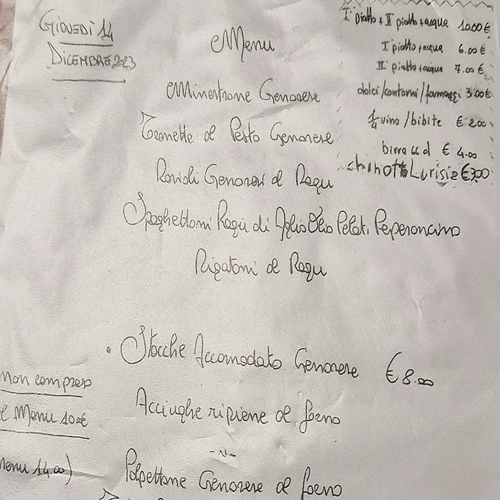 GIOVEDI 14
DICEMBRE 2023
Menu
I° piatto + II piatto + acqua 10.00 €
I piatto + acqua 6.00 €
II piatto + acqua 7.00 €
dolci/contorni/formaggi 3.00€
1/4 vino / bibite € 2.00
birra € 4.00
chinotto Lurisia € 3,00
Minestrone Genovese
Trenette al Pesto Genovese
Ravioli Genovesi al Ragu
Spaghettoni Ragù di Aglio Olio Pelati Peperoncino
Rigatoni al Ragu
• Stocche Accomodato Genovese € 8.00
non compreso
el Menu 10€
menu 14.00)
Acciughe ripiene al forno
~N~
Polpettone Genovese al forno